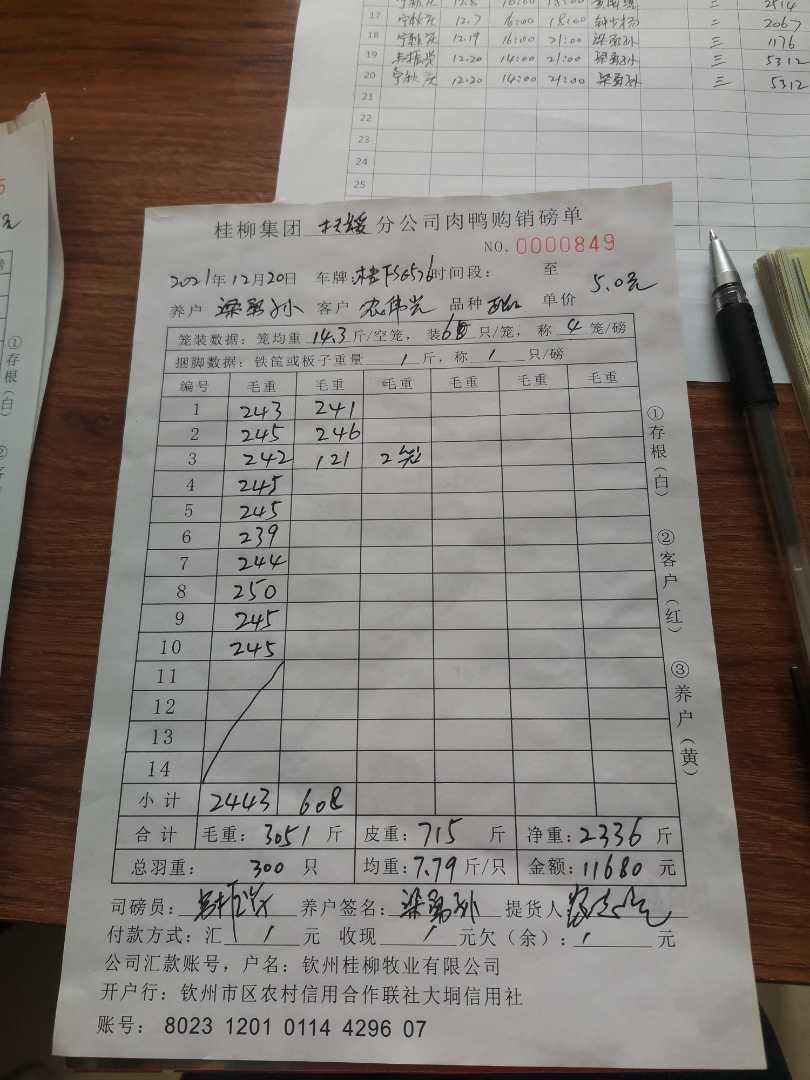 17 12.7 16:00 18:00 二 2067
18 12.19 16:00 21:00 梁勇孙 三 1176
19 12.20 14:00 21:00 梁勇孙 三 5312
20 12.20 14:00 21:00 梁勇孙 三 5312
21
22
23
24
25
桂柳集团 分公司肉鸭购销磅单
NO. 0000849
2021年12月20日 车牌: 时间段: 至
养户 梁勇孙 客户 农伟光 品种 单价 5.0元
笼装数据: 笼均重 14.3 斤/空笼, 装 只/笼, 称 4 笼/磅
捆脚数据: 铁筐或板子重量 / 斤, 称 / 只/磅
编号 毛重 毛重 毛重 毛重 毛重 毛重
1 243 241
2 245 246
3 242 121 2笼
4 245
5 245
6 239
7 244
8 250
9 245
10 245
11
12
13
14
小计 2443 608
合计 毛重: 3051 斤 皮重: 715 斤 净重: 2336 斤
总羽重: 300 只 均重: 7.79 斤/只 金额: 11680 元
司磅员: 养户签名: 梁勇孙 提货人
付款方式: 汇 / 元 收现 / 元欠(余): / 元
公司汇款账号, 户名: 钦州桂柳牧业有限公司
开户行: 钦州市区农村信用合作联社大垌信用社
账号: 8023 1201 0114 4296 07
①存根(白) ②客户(红) ③养户(黄)
①存根(白) ②